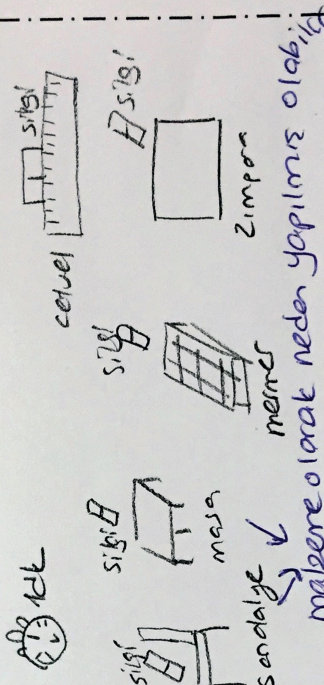 1dk
silgi
silgi
silgi
silgi
silgi
cetvel
sandalye
masa
mermer
Zımpara
malzeme olarak neden yapılmış olabilir